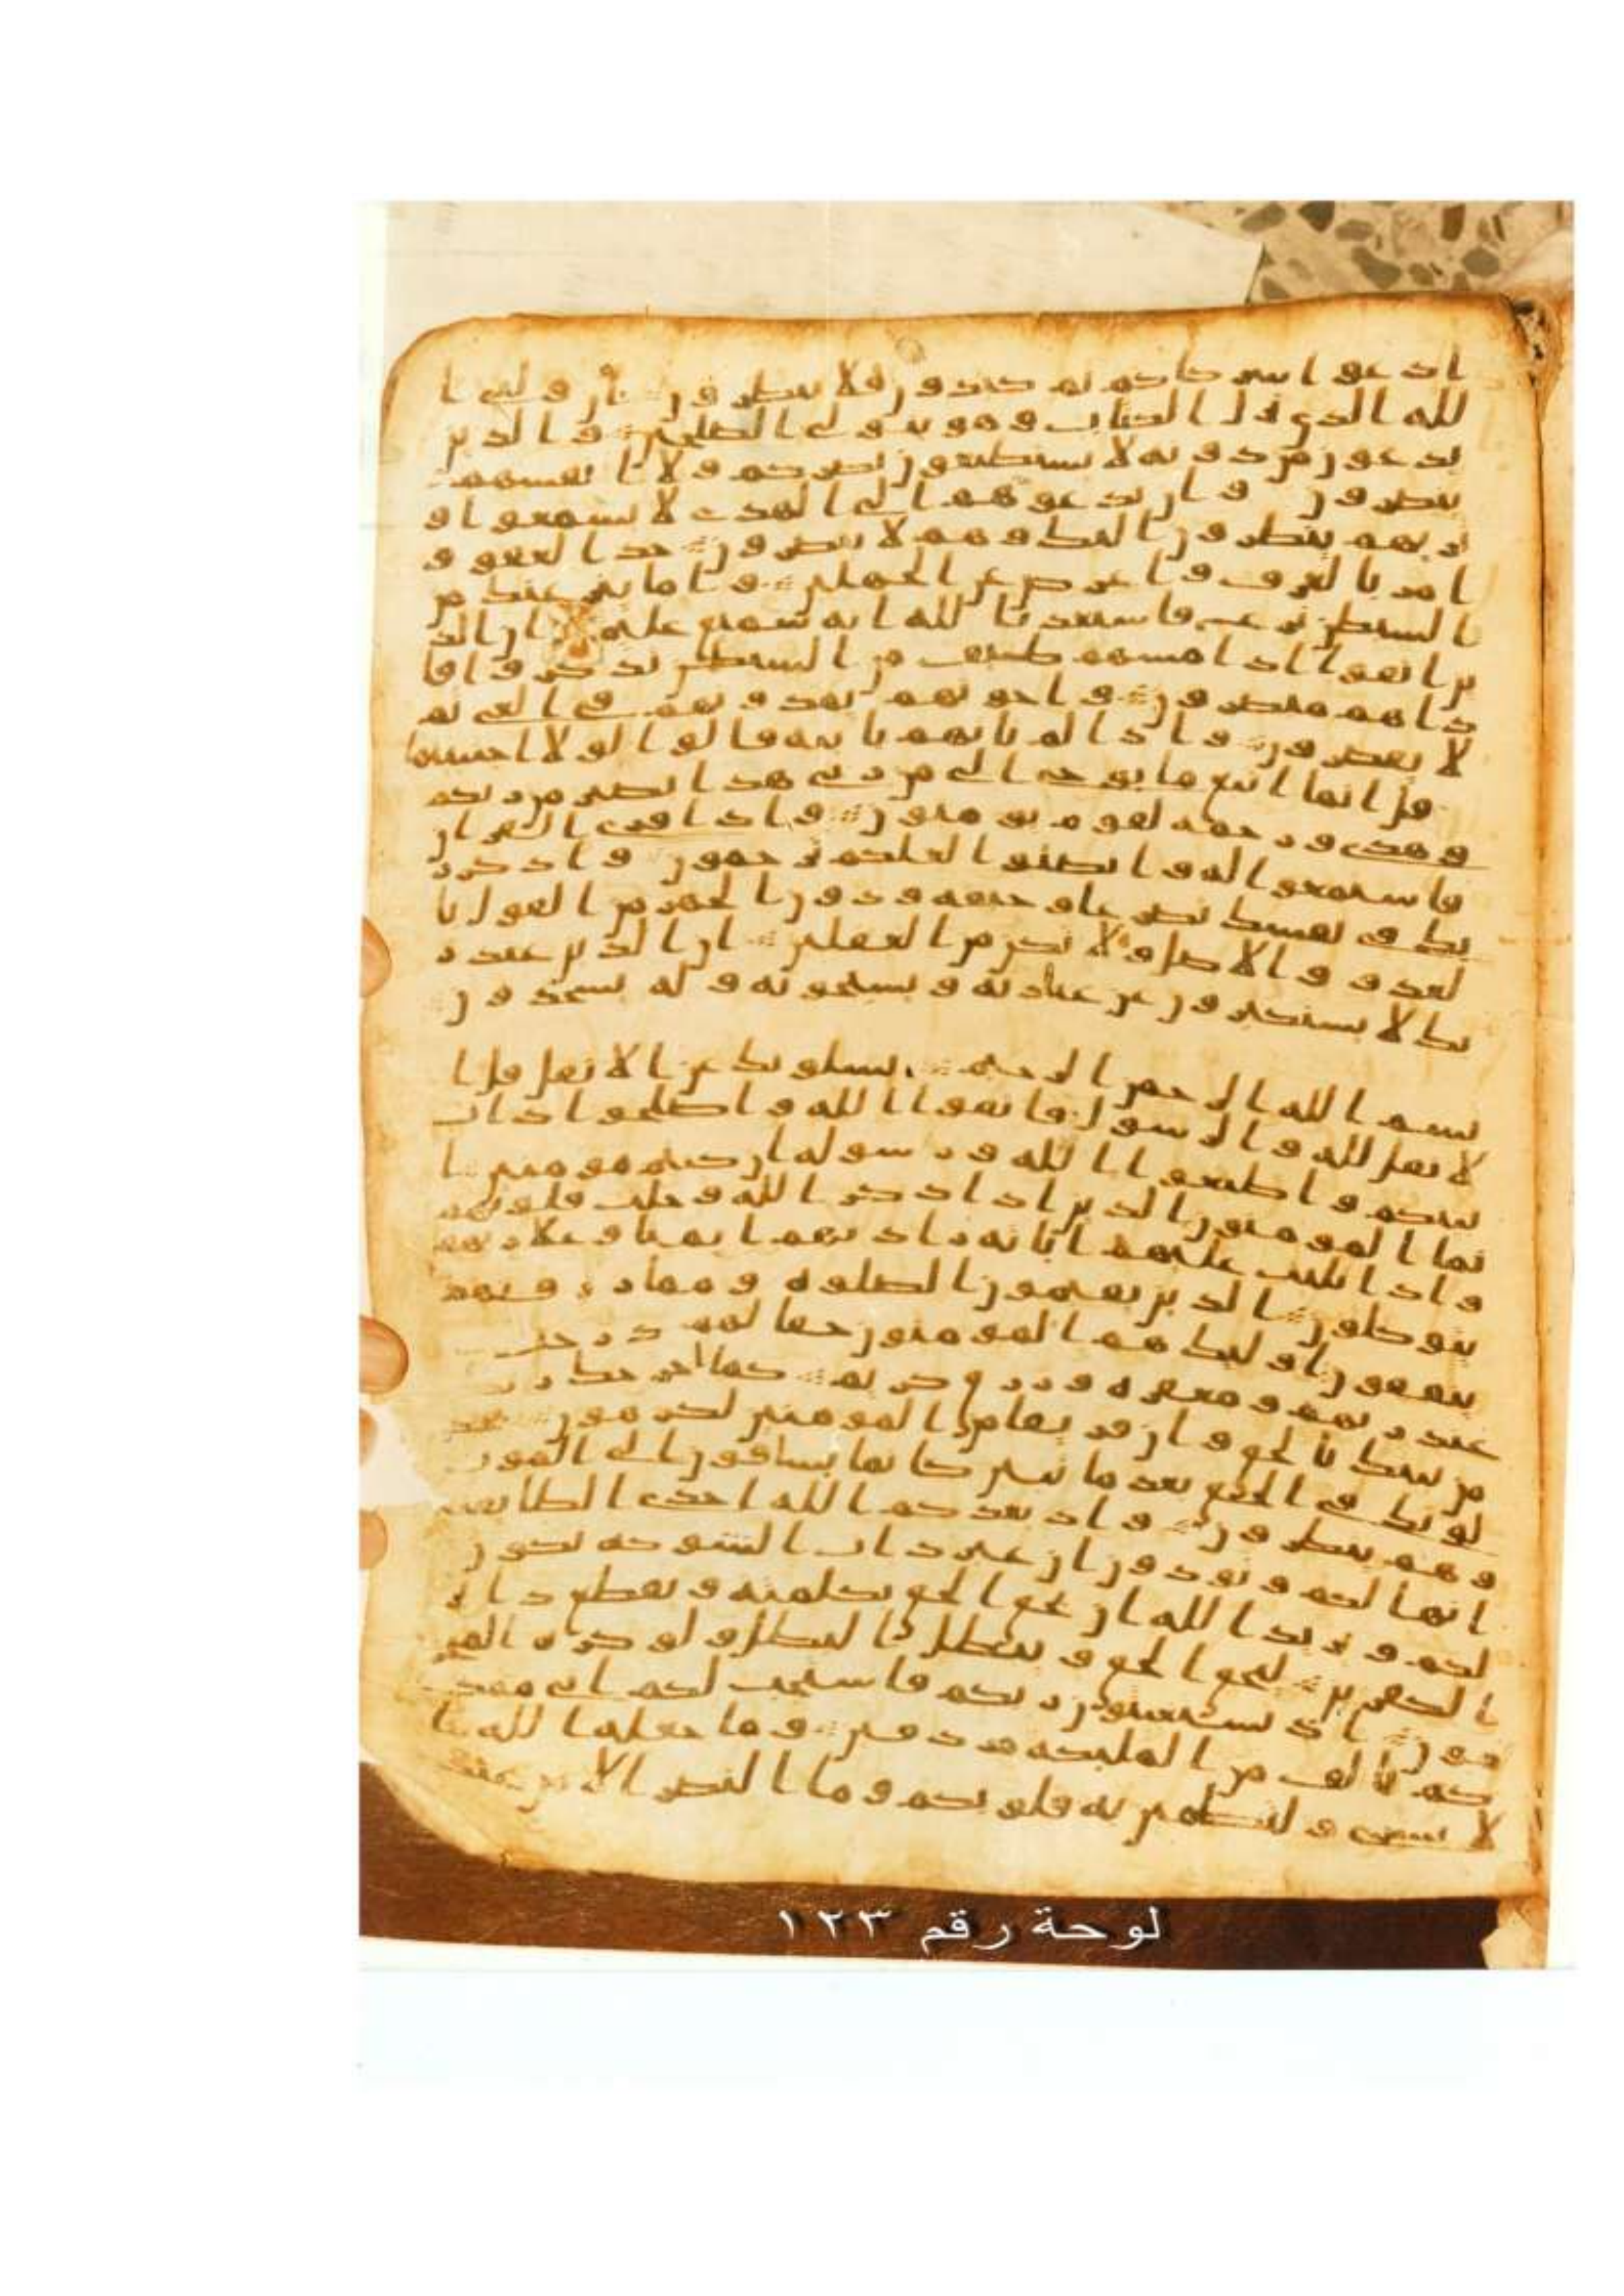 ادعوا شركاكم ثم كيدون فلا تنظرون ان ولي ا
لله الذي نزل الكتاب وهو يتولى الصلحين والذين
يدعون من دونه لا يستطيعون نصركم ولا انفسهم
ينصرون وان تدعوهم الى الهدى لا يسمعوا و
تريهم ينظرون اليك وهم لا يبصرون خذ العفو و
امر بالعرف واعرض عن الجهلين واما ينزغنك من
ا لشيطن نزغ فاستعذ بالله انه سميع عليم ان الذ
ين اتقوا اذا مسهم طيف من الشيطن تذكروا فا
ذا هم مبصرون واخونهم يمدونهم في الغي ثم
لا يقصرون واذا لم تاتهم باية قالوا لولا اجتبيتها
قل انما اتبع ما يوحى الي من ربي هذا بصير من ربكم
وهدى ورحمة لقوم يومنون واذا قرى القران
فاستمعوا له وانصتوا لعلكم ترحمون واذكر ر
بك في نفسك تضرعا وخيفة ودون الجهر من القول با
لغدو والاصل ولا تكن من الغفلين ان الذين عند ر
بك لا يستكبرون عن عبادته ويسبحونه وله يسجدون
بسم الله الرحمن الرحيم يسلونك عن الانفل قل ا
لانفل لله والرسول فاتقوا الله واصلحوا ذات
بينكم واطيعوا الله ورسوله ان كنتم مومنين ا
نما المومنون الذين اذا ذكر الله وجلت قلوبهم
واذا تليت عليهم ايته زادتهم ايمنا وعلى ربهم
يتوكلون الذين يقيمون الصلوة ومما رزقنهم
ينفقون اوليك هم المومنون حقا لهم درجت
عند ربهم ومغفرة ورزق كريم كما اخرجك ربك
من بيتك بالحق وان فريقا من المومنين لكرهون يجد
لونك في الحق بعد ما تبين كانما يساقون الى الموت
وهم ينظرون واذ يعدكم الله احدى الطايفتين
انها لكم وتودون ان غير ذات الشوكة تكون
لكم ويريد الله ان يحق الحق بكلمته ويقطع دابر
ا لكفرين ليحق الحق ويبطل البطل ولو كره المجر
مون اذ تستغيثون ربكم فاستجب لكم اني ممد
كم بالف من المليكة مردفين وما جعله الله ا
لا بشرى ولتطمين به قلوبكم وما النصر الا من عند
لوحة رقم ١٢٣